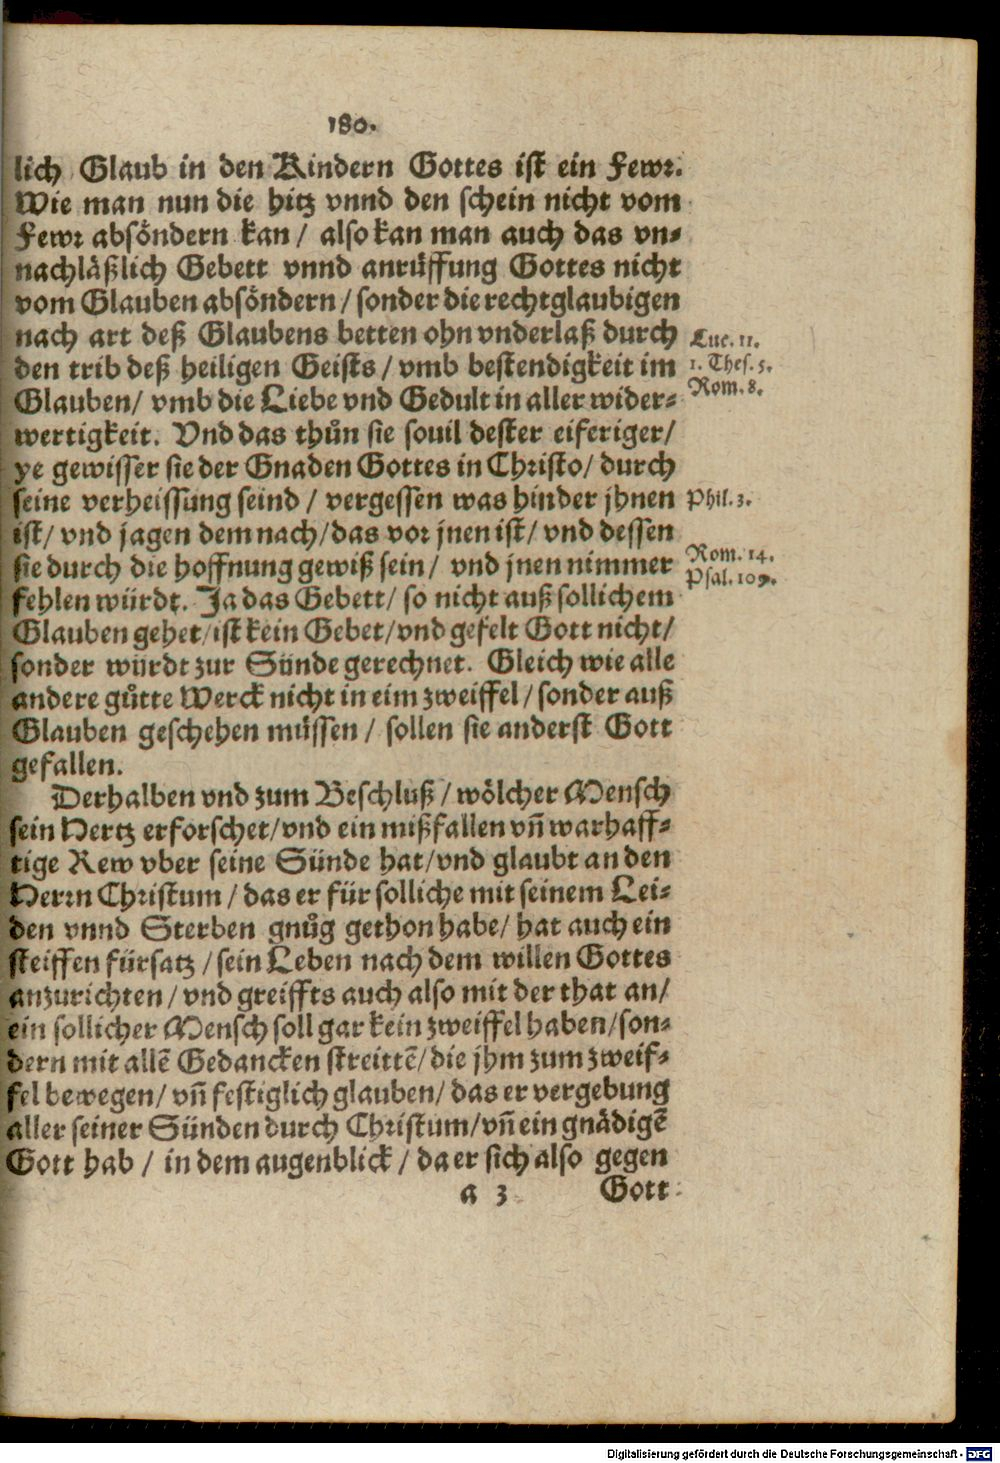 180.
lich Glaub in den Kindern Gottes ist ein Fewr.
Wie man nun die hitz vnnd den schein nicht vom
Fewr absöndern kan / also kan man auch das vn-
nachläßlich Gebett vnnd anrüffung Gottes nicht
vom Glauben absöndern / sonder die rechtglaubigen
nach art deß Glaubens betten ohn vnderlaß durch
Luc. 11.
den trib deß heiligen Geists / vmb bestendigkeit im
1. Thes. 5.
Glauben / vmb die Liebe vnd Gedult in aller wider-
Rom. 8.
wertigkeit. Vnd das thůn sie souil dester eiferiger /
ye gewisser sie der Gnaden Gottes in Christo / durch
seine verheissung seind / vergessen was hinder jhnen
Phil. 3.
ist / vnd jagen dem nach / das vor jnen ist / vnd dessen
sie durch die hoffnung gewiß sein / vnd jnen nimmer
Rom. 14.
Psal. 109.
fehlen würdt. Ja das Gebett / so nicht auß sollichem
Glauben gehet / ist kein Gebet / vnd gefelt Gott nicht /
sonder würdt zur Sünde gerechnet. Gleich wie alle
andere gůtte Werck nicht in eim zweiffel / sonder auß
Glauben geschehen müssen / sollen sie anderst Gott
gefallen.
Derhalben vnd zum Beschluß / wölcher Mensch
sein Hertz erforschet / vnd ein mißfallen vñ warhaff-
tige Rew vber seine Sünde hat / vnd glaubt an den
Herrn Christum / das er für solliche mit seinem Lei-
den vnnd Sterben gnůg gethon habe / hat auch ein
steiffen fürsatz / sein Leben nach dem willen Gottes
anzurichten / vnd greiffts auch also mit der that an /
ein sollicher Mensch soll gar kein zweiffel haben / son-
dern mit allẽ Gedancken streittẽ / die jhm zum zweif-
fel bewegen / vñ festiglich glauben / das er vergebung
aller seiner Sünden durch Christum / vñ ein gnädigẽ
Gott hab / in dem augenblick / da er sich also gegen
a 3 Gott
Digitalisierung gefördert durch die Deutsche Forschungsgemeinschaft - DFG